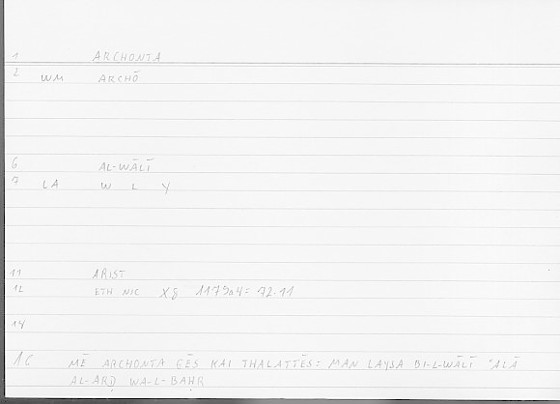 1 ARCHONTA
2 WM ARCHŌ
6 AL-WĀLĪ
7 LA W L Y
11 ARIST
12 ETH NIC X8 1179a4 = 72.11
14
16 MĒ ARCHONTA GĒS KAI THALATTĒS: MAN LAYSA BI-L-WĀLĪ ʿALĀ
AL-ARḌ WA-L-BAḤR